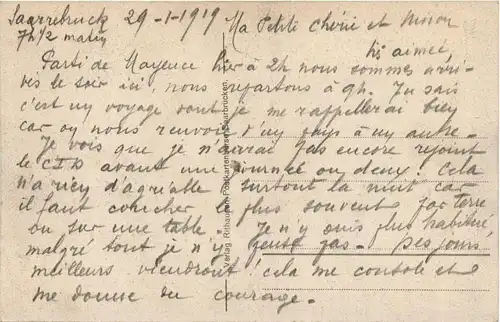 Saarrebruck 29-1-1919 Ma Petite chérie et Mimon
7h 1/2 matin bi aimée,
Parti de Mayence hier à 2h nous sommes arri-
vés le soir ici, nous repartons à 9h. Tu sais
c'est un voyage dont je me rappellerai bien
car on nous renvoie d'un pays à un autre.
Je vois que je n'aurai pas encore rejoint
le CID avant une journée ou deux. Cela
n'a rien d'agréable surtout la nuit car
il faut coucher le plus souvent par terre
ou sur une table. Je n'y suis plus habitué,
malgré tout je n'y pense pas - Des jours
meilleurs viendront! cela me console et
me donne du courage.
Verlag Rithausen Postkartenzentrale Saarbrücken